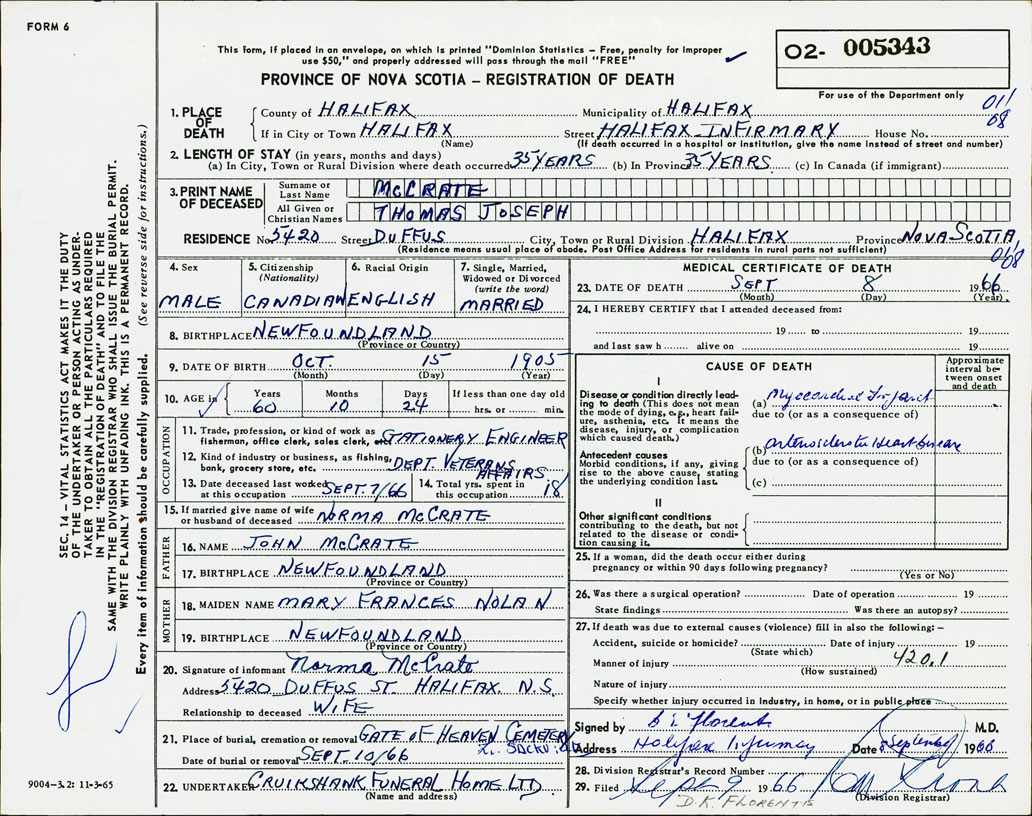 FORM 6
This form, if placed in an envelope, on which is printed "Dominion Statistics – Free, penalty for improper
use $50," and properly addressed will pass through the mail "FREE"
PROVINCE OF NOVA SCOTIA – REGISTRATION OF DEATH
02- 005343
For use of the Department only
011
08
1. PLACE OF DEATH
County of HALIFAX Municipality of HALIFAX
If in City or Town HALIFAX Street HALIFAX INFIRMARY House No.
(Name) (If death occurred in a hospital or institution, give the name instead of street and number)
2. LENGTH OF STAY (in years, months and days)
(a) In City, Town or Rural Division where death occurred 35 YEARS (b) In Province 35 YEARS (c) In Canada (if immigrant)
3. PRINT NAME OF DECEASED
Surname or Last Name McCRATE
All Given or Christian Names THOMAS JOSEPH
RESIDENCE No. 5420 Street DUFFUS City, Town or Rural Division HALIFAX Province NOVA SCOTIA
(Residence means usual place of abode. Post Office Address for residents in rural parts not sufficient)
4. Sex
MALE
5. Citizenship
(Nationality)
CANADIAN
6. Racial Origin
ENGLISH
7. Single, Married,
Widowed or Divorced
(write the word)
MARRIED
8. BIRTHPLACE NEWFOUNDLAND
(Province or Country)
9. DATE OF BIRTH OCT. 15 1905
(Month) (Day) (Year)
10. AGE in
Years Months Days If less than one day old
60 10 24 hrs. or min.
OCCUPATION
11. Trade, profession, or kind of work as
fisherman, office clerk, sales clerk, etc STATIONERY ENGINEER
12. Kind of industry or business, as fishing,
bank, grocery store, etc. DEPT. VETERANS
AFFAIRS.
13. Date deceased last worked
at this occupation SEPT. 7/66
14. Total yrs. spent in
this occupation 18
15. If married give name of wife
or husband of deceased NORMA McCRATE
FATHER
16. NAME JOHN McCRATE
17. BIRTHPLACE NEWFOUNDLAND
(Province or Country)
MOTHER
18. MAIDEN NAME MARY FRANCES NOLAN
19. BIRTHPLACE NEWFOUNDLAND
(Province or Country)
20. Signature of informant Norma McCrate
Address 5420 DUFFUS ST. HALIFAX. N.S.
Relationship to deceased WIFE
21. Place of burial, cremation or removal GATE OF HEAVEN CEMETERY
Date of burial or removal SEPT 10/66
22. UNDERTAKER CRUIKSHANK FUNERAL HOME LTD
(Name and address)
MEDICAL CERTIFICATE OF DEATH
23. DATE OF DEATH SEPT 8 1966
(Month) (Day) (Year)
24. I HEREBY CERTIFY that I attended deceased from:
19 to 19
and last saw h alive on 19
CAUSE OF DEATH
Approximate
interval be-
tween onset
and death
I
Disease or condition directly lead-
ing to death (This does not mean
the mode of dying, e.g., heart fail-
ure, asthenia, etc. It means the
disease, injury, or complication
which caused death.)
(a) Myocardial Infarct
due to (or as a consequence of)
Antecedent causes
Morbid conditions, if any, giving
rise to the above cause, stating
the underlying condition last.
(b) arteriosclerotic Heart Disease
due to (or as a consequence of)
(c)
II
Other significant conditions
contributing to the death, but not
related to the disease or condi-
tion causing it.
25. If a woman, did the death occur either during
pregnancy or within 90 days following pregnancy?
(Yes or No)
26. Was there a surgical operation? Date of operation 19
State findings Was there an autopsy?
27. If death was due to external causes (violence) fill in also the following:–
Accident, suicide or homicide? Date of injury 19
(State which)
Manner of injury 420.1
(How sustained)
Nature of injury
Specify whether injury occurred in industry, in home, or in public place
Signed by Florentis M.D.
Address Halifax Infirmary Date 8 September 1966
28. Division Registrar's Record Number
29. Filed Sept 9 1966
(Division Registrar)
D.K. FLORENTIS
SEC. 14 – VITAL STATISTICS ACT MAKES IT THE DUTY
OF THE UNDERTAKER OR PERSON ACTING AS UNDER-
TAKER TO OBTAIN ALL THE PARTICULARS REQUIRED
IN THE "REGISTRATION OF DEATH" AND TO FILE THE
SAME WITH THE DIVISION REGISTRAR WHO SHALL ISSUE THE BURIAL PERMIT.
WRITE PLAINLY WITH UNFADING INK. THIS IS A PERMANENT RECORD.
Every item of information should be carefully supplied. (See reverse side for instructions.)
9004-3.2: 11-3-65